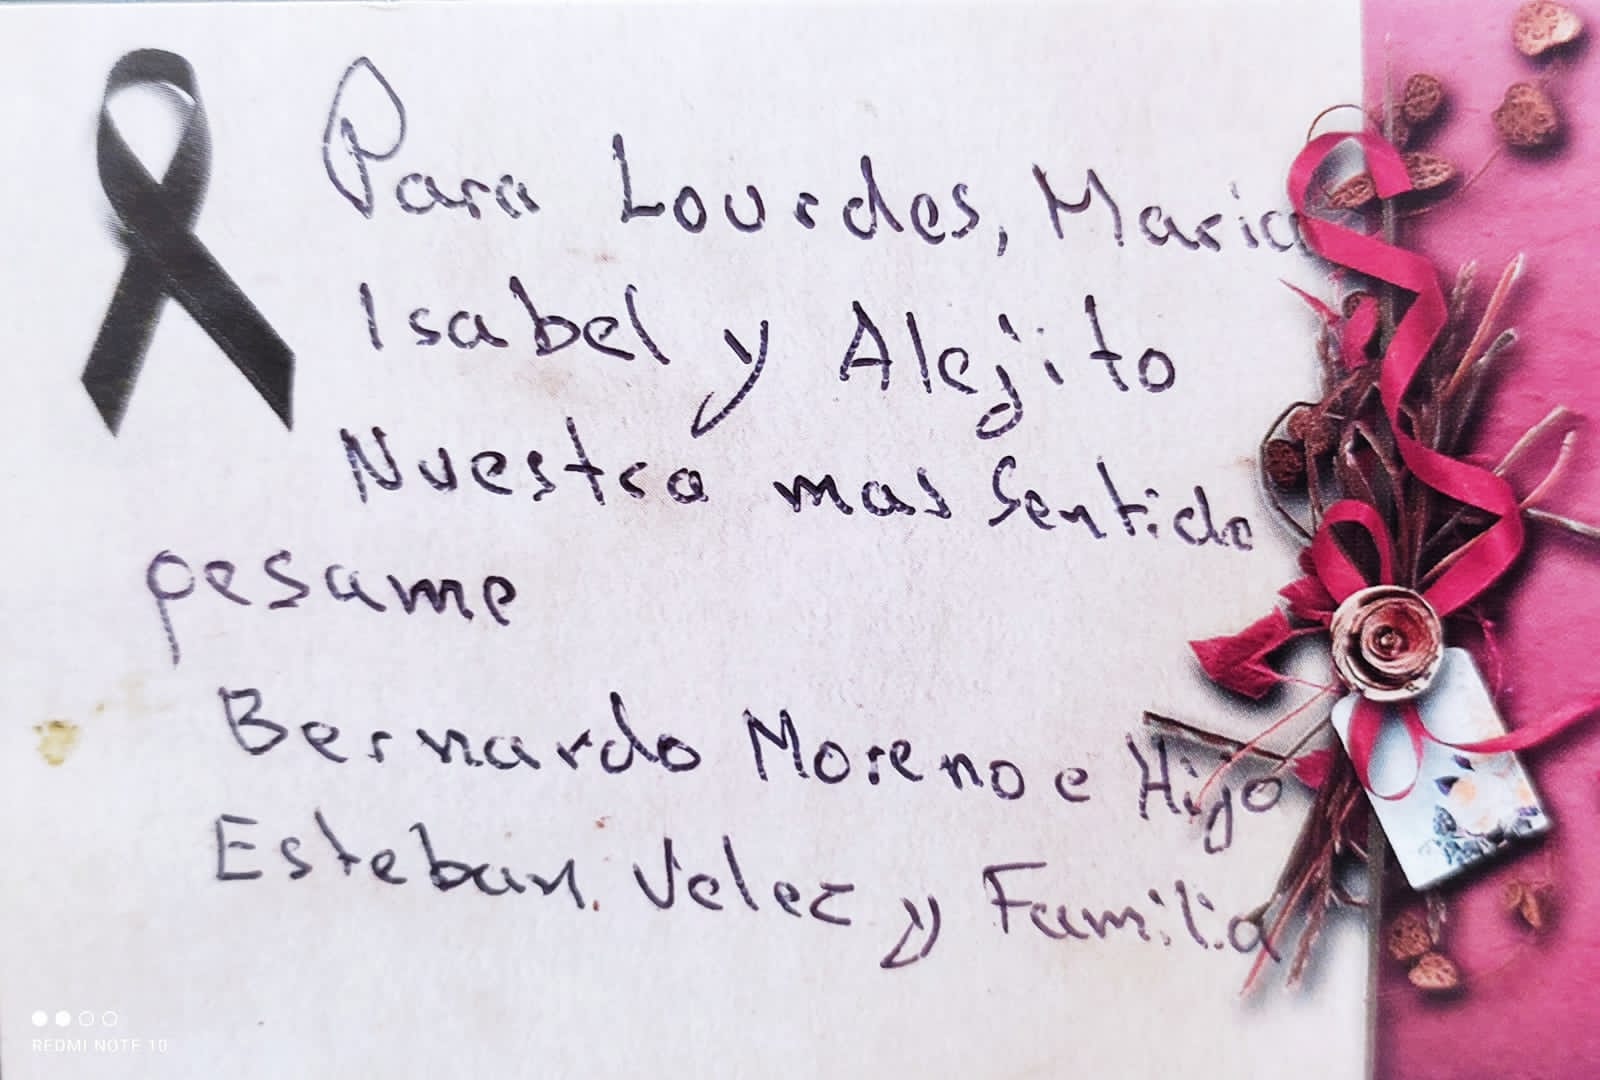 Para Lourdes, Maria
Isabel y Alejito
Nuestro mas sentido
pesame
Bernardo Moreno e Hijo
Esteban. Velez y Familia
REDMI NOTE 10